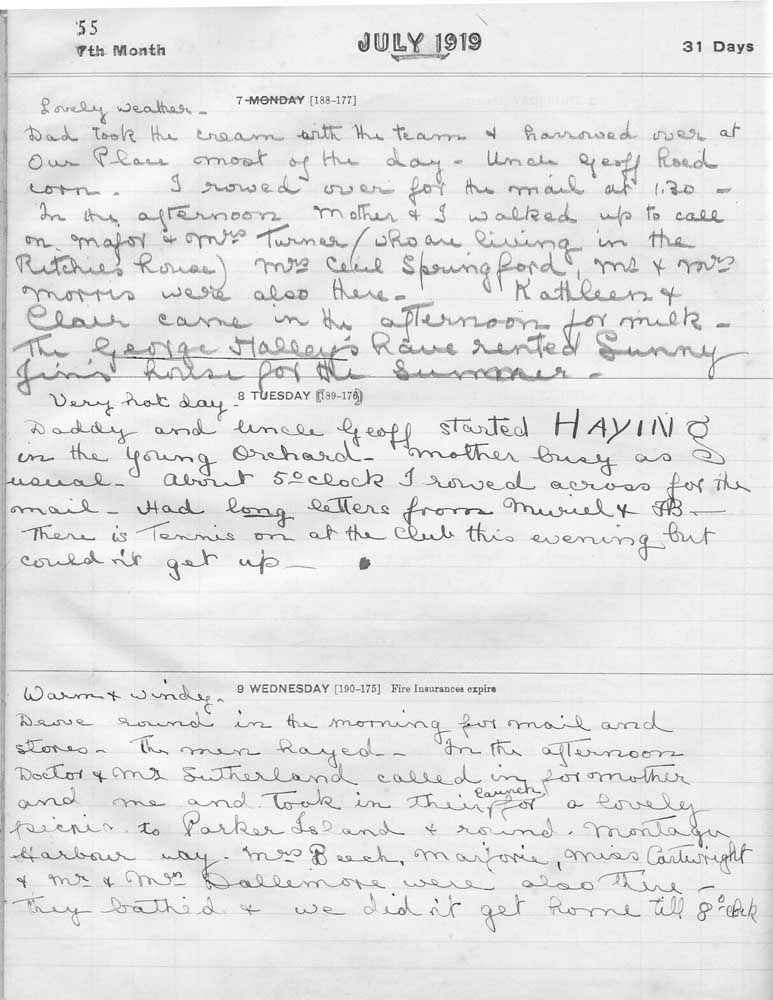 55
7th Month
JULY 1919
31 Days
7 MONDAY [188-177]
Lovely weather -
Dad took the cream with the team & harrowed over at
Our Place most of the day - Uncle Geoff hoed
corn. I rowed over for the mail at 1.30 -
In the afternoon Mother & I walked up to call
on Major & Mrs Turner (who are living in the
Ritchie's house) Mrs Cecil Springford, Mr & Mrs
Morris were also there - Kathleen &
Clair came in the afternoon for milk -
The George Halley's have rented Sunny
Jim's house for the Summer -
8 TUESDAY [189-176]
Very hot day.
Daddy and Uncle Geoff started HAYING
in the Young Orchard - Mother busy as
usual - About 5 o'clock I rowed across for the
mail - Had long letters from Muriel &
There is Tennis on at the Club this evening but
couldn't get up -
9 WEDNESDAY [190-175] Fire Insurances expire
Warm & windy.
Drove round in the morning for mail and
stores - The men hayed - In the afternoon
Doctor & Mr Sutherland called in for mother
and me and took in their launch for a lovely
picnic to Parker Island & round Montagu
Harbour way. Mrs Beech, Marjorie, Miss Cartwright
& Mr & Mrs Dallemore were also there -
They bathed & we didn't get home till 8 o'clock